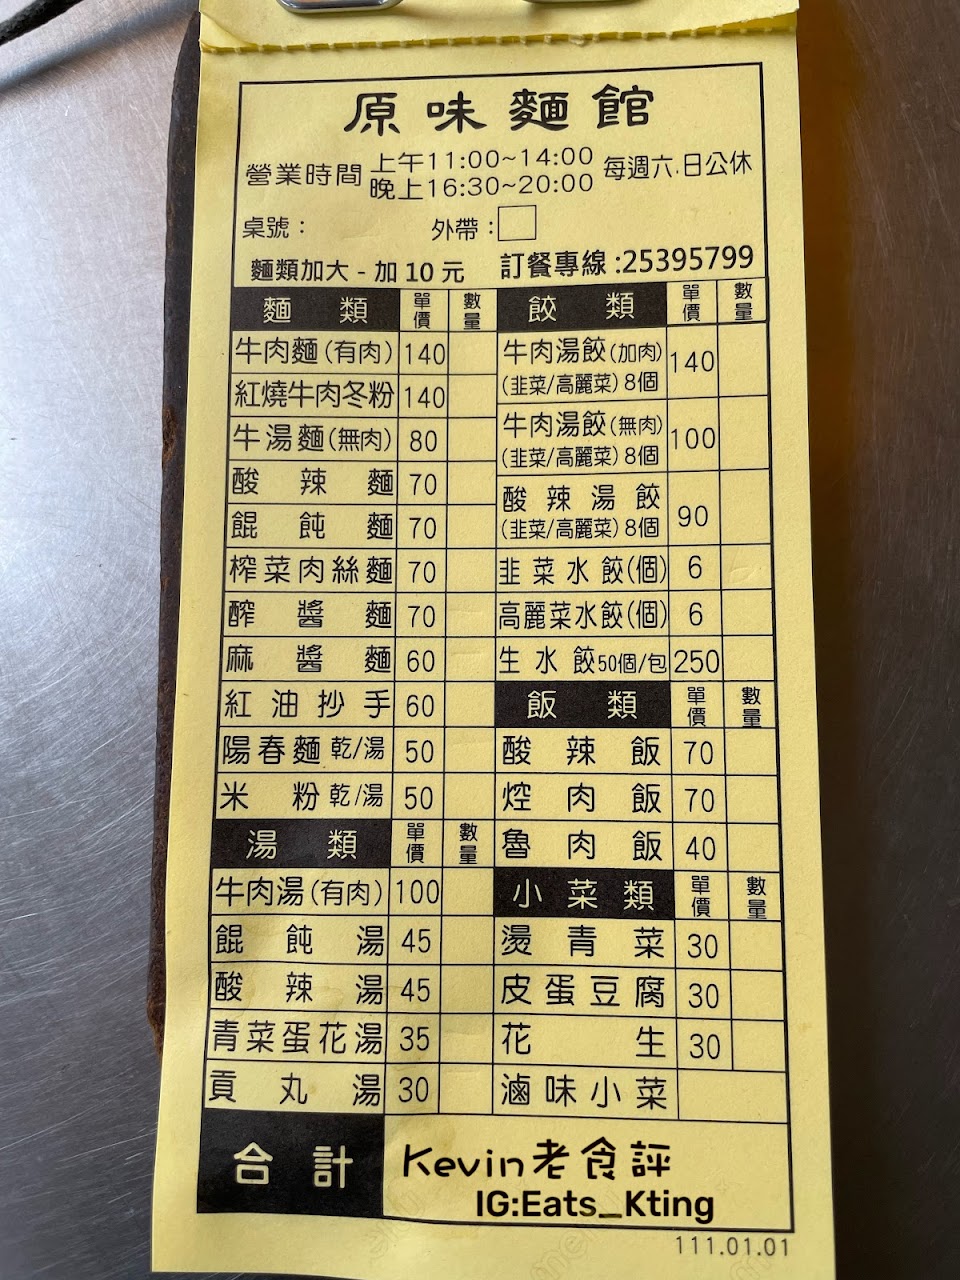 原味麵館
營業時間 上午11:00~14:00 每週六.日公休
晚上16:30~20:00
桌號： 外帶：□
麵類加大-加10元 訂餐專線:25395799
麵類 單價 數量
牛肉麵(有肉) 140
紅燒牛肉冬粉 140
牛湯麵(無肉) 80
酸辣麵 70
餛飩麵 70
榨菜肉絲麵 70
醡醬麵 70
麻醬麵 60
紅油抄手 60
陽春麵 乾/湯 50
米粉 乾/湯 50
湯類 單價 數量
牛肉湯(有肉) 100
餛飩湯 45
酸辣湯 45
青菜蛋花湯 35
貢丸湯 30
餃類 單價 數量
牛肉湯餃(加肉) 140
(韭菜/高麗菜)8個
牛肉湯餃(無肉) 100
(韭菜/高麗菜)8個
酸辣湯餃 90
(韭菜/高麗菜)8個
韭菜水餃(個) 6
高麗菜水餃(個) 6
生水餃50個/包 250
飯類 單價 數量
酸辣飯 70
焢肉飯 70
魯肉飯 40
小菜類 單價 數量
燙青菜 30
皮蛋豆腐 30
花生 30
滷味小菜
合計
Kevin老食評
IG:Eats_Kting
111.01.01